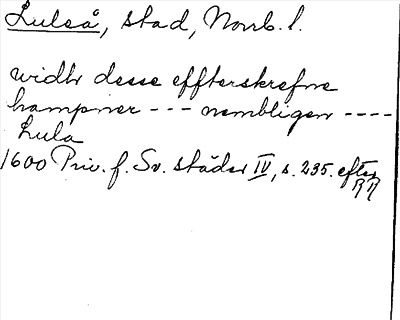 Luleå, stad, Norrb. l.
widh desse effterskrefne
hampner --- nembligen ----
Lula
1600 Priv. f. Sv. städer IV, s. 235. efter
RR